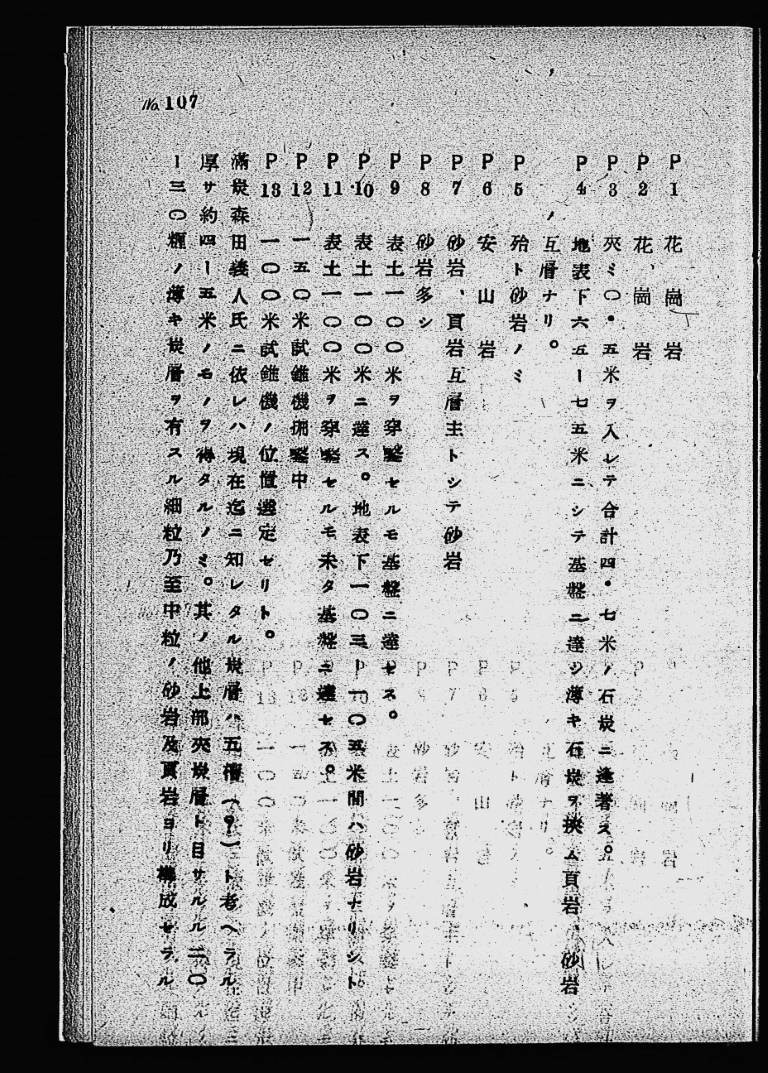 No. 107
P1 花崗岩
P2 花、崗岩
P3 夾ミ〇・五米ヲ入レテ合計四・七米ノ石炭ニ逢著ス。
P4 地表下六五ー七五米ニシテ基盤ニ達シ薄キ石炭ヲ挾ム頁岩、砂岩
互層ナリ。
P5 殆ト砂岩ノミ
P6 安山岩
P7 砂岩、頁岩互層主トシテ砂岩
P8 砂岩多シ
P9 表土一〇〇米ヲ穿鑿セルモ基盤ニ達セス。
P10 表土一〇〇米ニ達ス。地表下一〇三ー一〇五米間ハ砂岩ナリシト
P11 表土一〇〇米ヲ穿鑿セルモ未タ基盤ニ達セス。
P12 一五〇米試錐機掘鑿中
P13 一〇〇米試錐機ノ位置選定セリト。
滿炭森田義人氏ニ依レハ現在迄ニ知レタル炭層ハ五槽(?)ト考ヘラル
厚サ約四ー五米ノモノヲ得タルノミ。其ノ他上部夾炭層ト目サルル二〇
ー三〇糎ノ薄キ炭層ヲ有スル細粒乃至中粒ノ砂岩及頁岩ヨリ構成セラル